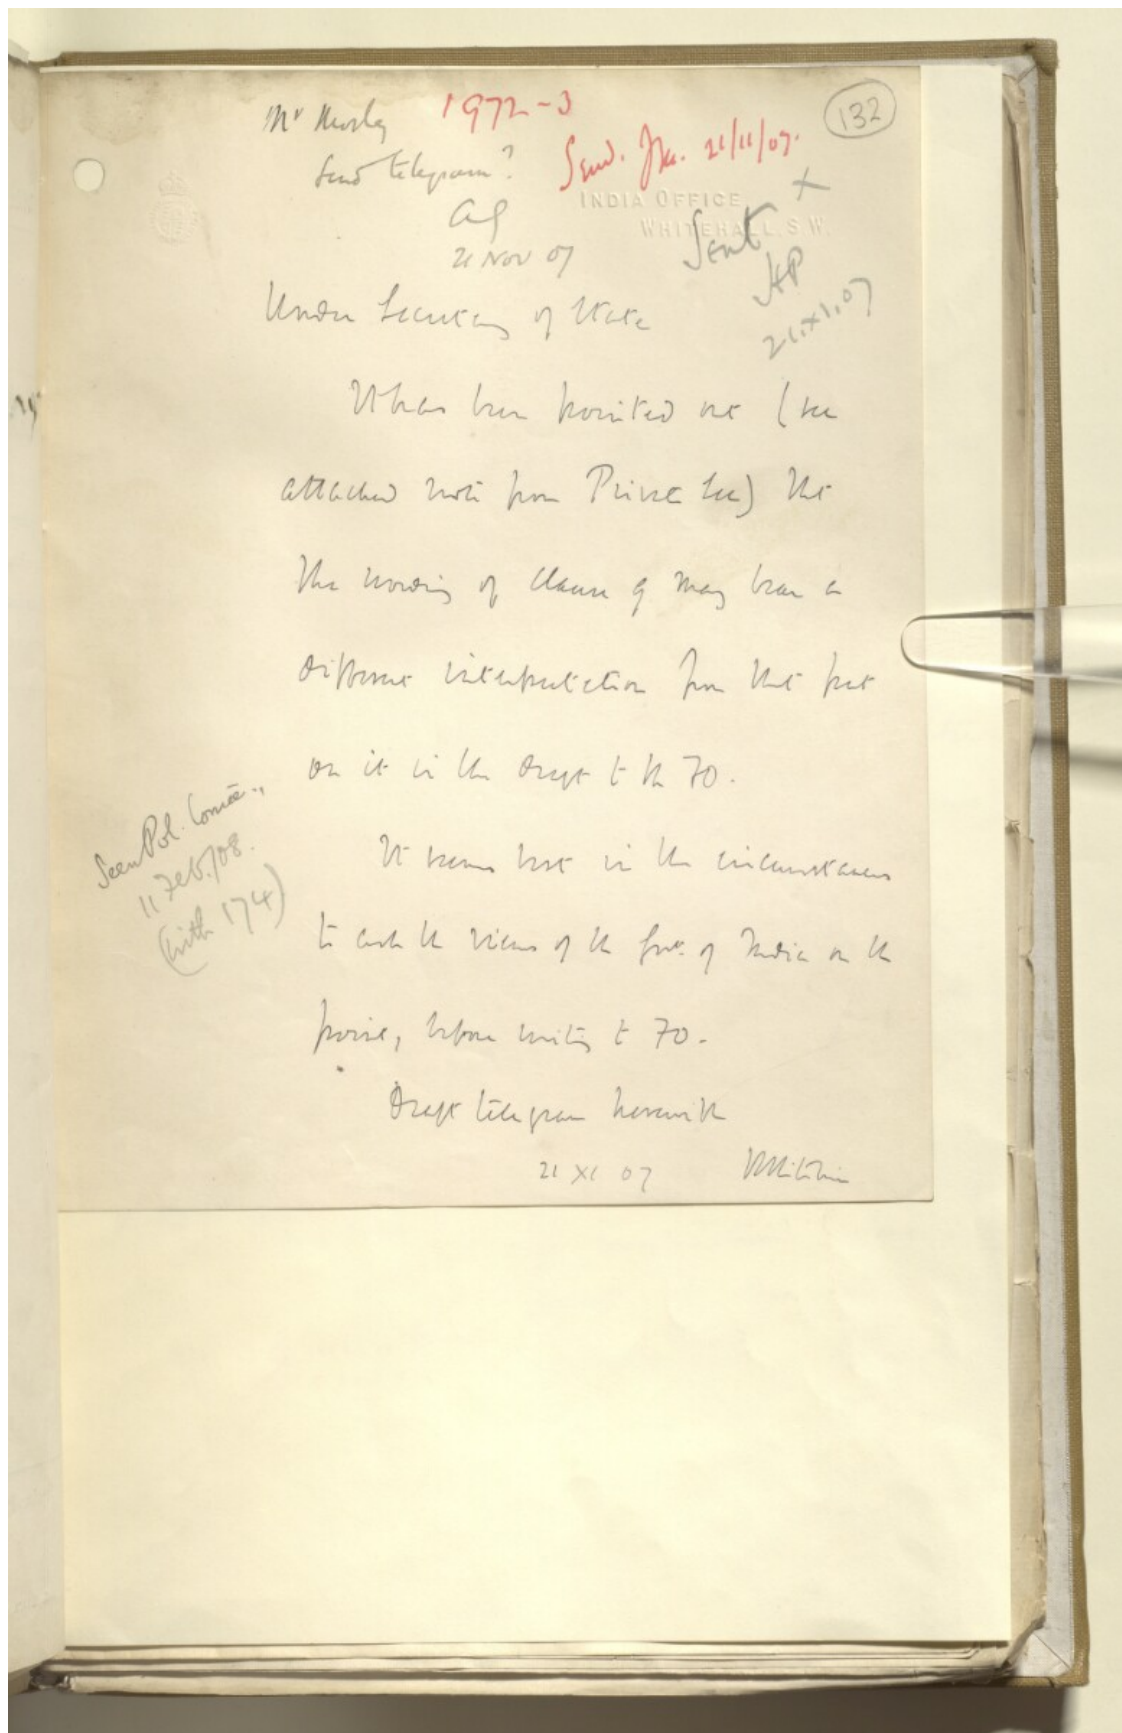 132
Mr Morley
1972-3
Send telegram?
Send. JM. 21/11/07.
INDIA OFFICE
WHITEHALL. S.W.
AG
21 Nov 07
Sent
HP
21.XI.07
Under Secretary of State
It has been pointed out (see
attached note from Private Sec) that
the wording of Clause 9 may bear a
different interpretation from that put
on it in the draft to the FO.
It seems best in the circumstances
to ask the views of the Govt. of India on the
point, before writing to FO.
Draft telegram herewith
21 XI 07
Seen Pol. Comee.,
11 Feb./08.
(with 174)